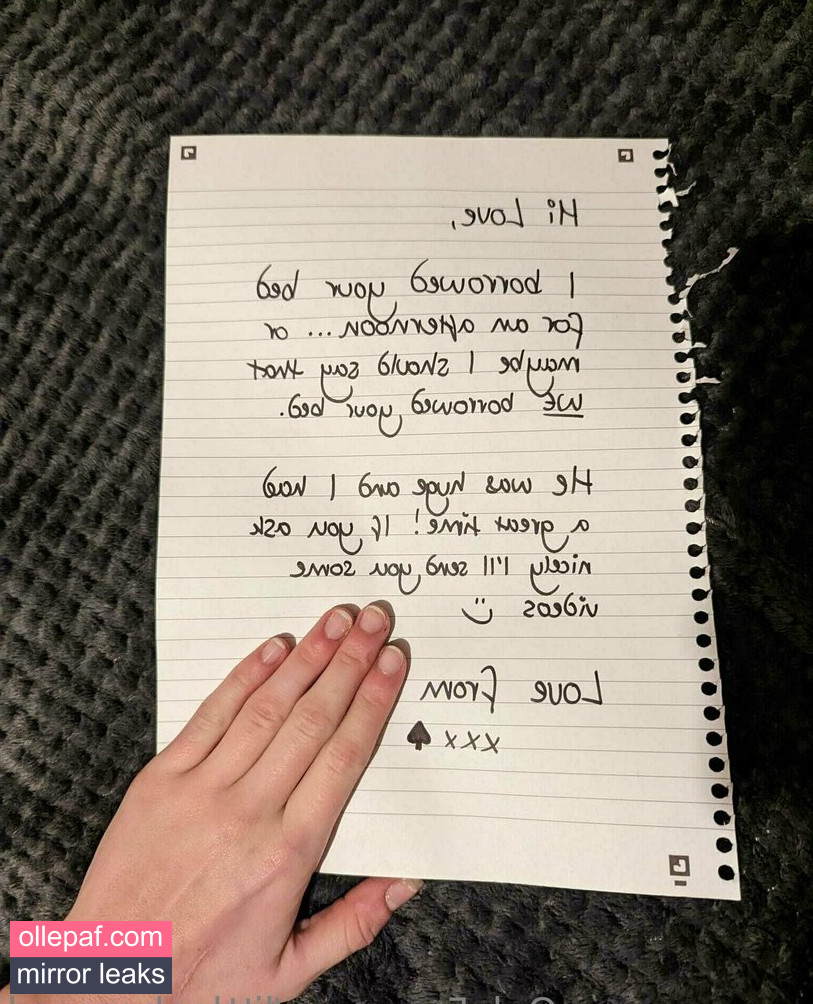 Hi Love,
I borrowed your bed
for an afternoon ... or
maybe I should say that
WE borrowed your bed.
He was huge and I had
a great time! If you ask
nicely I'll send you some
videos
Love from
xxx
ollepaf.com
mirror leaks